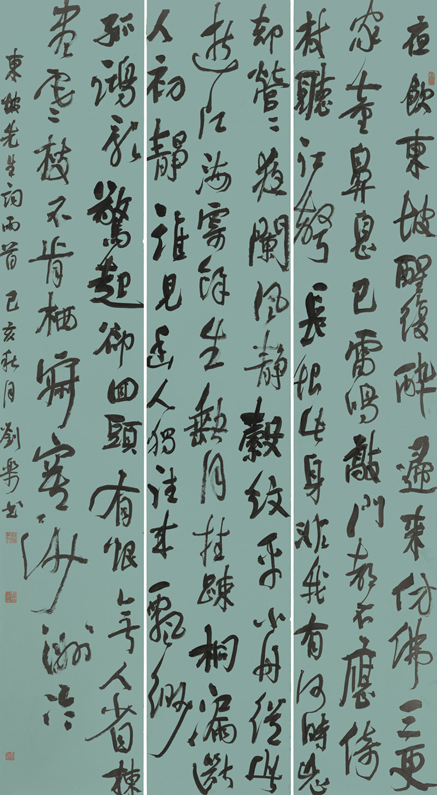 夜飲東坡醒復醉歸來仿佛三更
家童鼻息已雷鳴敲門都不應倚
杖聽江聲長恨此身非我有何時忘
却營〻夜闌風靜縠紋平小舟從此
逝江海寄餘生缺月挂踈桐漏斷
人初靜誰見幽人獨往來飄緲
孤鴻影驚起卻回頭有恨無人省揀
盡寒枝不肯栖寂寞沙洲冷
東坡先生詞兩首己亥秋月劉書